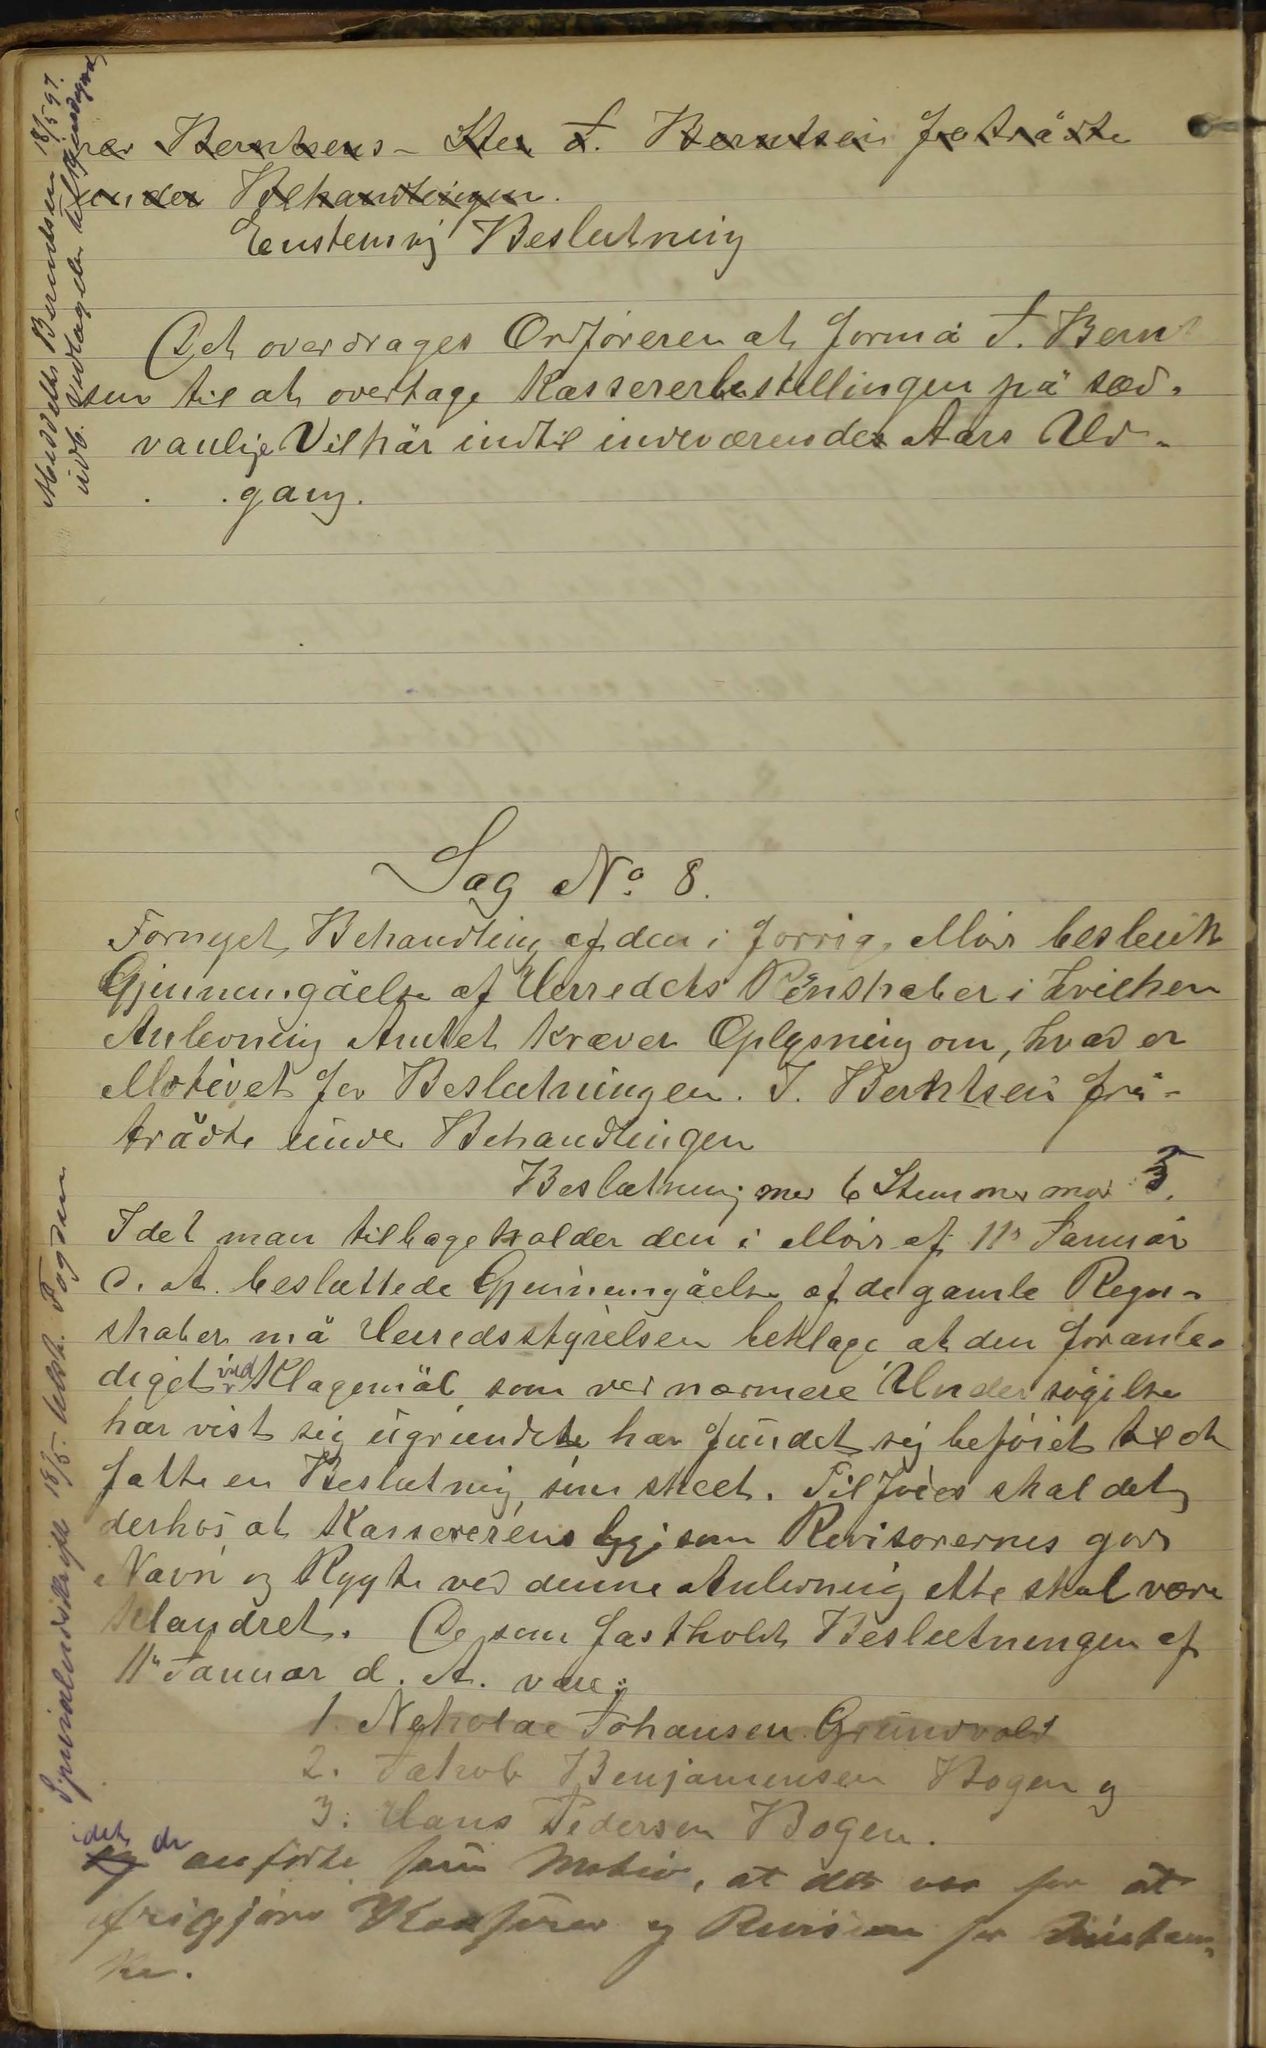 Meddelt Berndtsen 18/5 97.
udb. vedtagelse
Berntsens – Her J. Berntsen fratrådte
under Behandlingen.
Enstemig Beslutning
Det overdrages Ordføreren at formå J. Bernt
sen til at overtage Kassererbestillingen på sæd-
vanlige Vilkår indtil indeværendes Aars Ud-
gang.
Sag No. 8.
Fornyet Behandling af den i forrige Møde besluttede
Gjennemgåelse af Herredets Regnskaber i hvilken
Anledning Amtet kræver Oplysning om, hvad er
Motivet for Beslutningen. J. Berntsen fra-
trådte under Behandlingen
Beslutning med 6 Stemmer mod 3.
Idet man tilbageholder den i Møde af 11te Januar
d. A. besluttede Gjennemgåelse af de gamle Regn-
skaber må Herredsstyrelsen beklage at den foranle-
diget ved Klagemål som ved nærmere Undersøgelse
har vist sig ugrundete har fundet sig beføiet til at
fatte en Beslutning som skeet. Tilføies skal det
derhos at Kassererens ligesom Revisorernes gode
Navn og Rygte ved denne Anledning ikke skal være
klandret. De som fastholdt Beslutningen af
11te Januar d. A. vare:
1. Nikolae Johansen Grundvold
2. Jakob Benjaminsen Bogen og
3. Hans Pedersen Bogen.
idet de anførte som Motiv, at det var for at
frigjøre Kasserer og Revisorer for Mistan-
ke.
Specialudskrift 18/5. Fogden